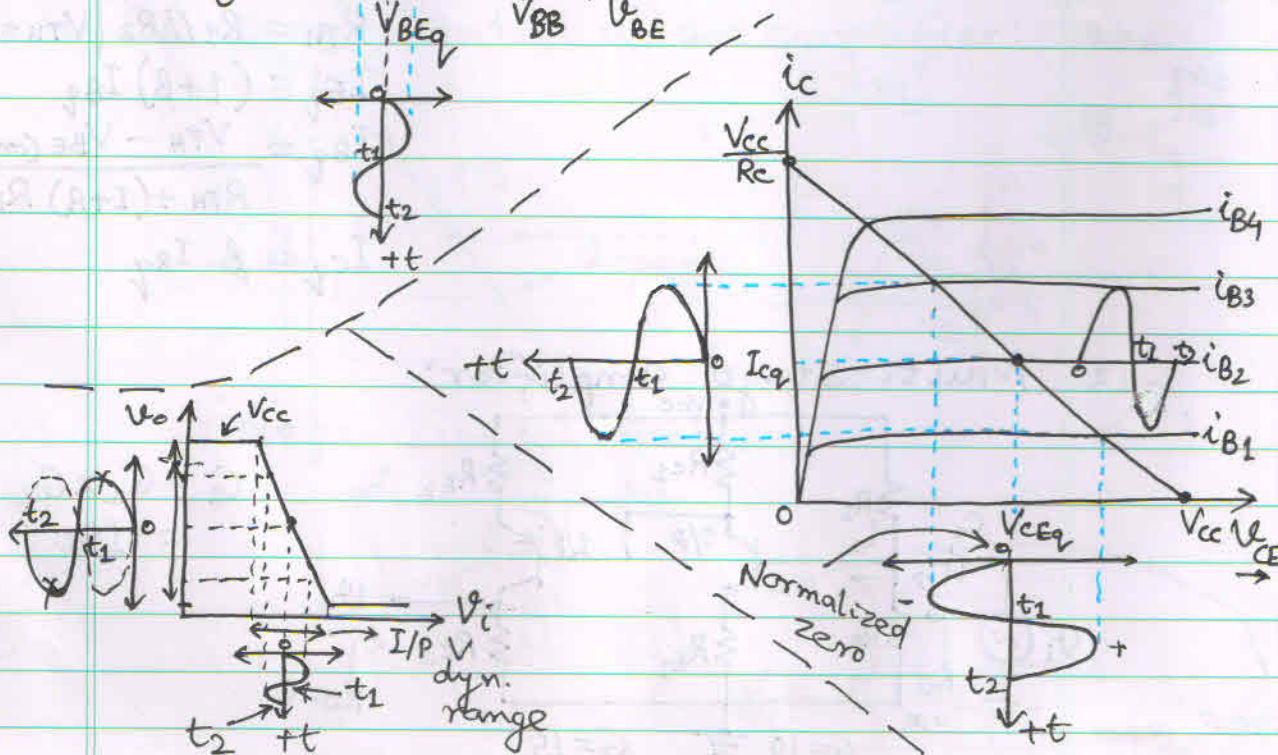 V_BEq V_BB v_BE
t1
t2
+t
i_C
V_CC/R_C
i_B4
i_B3
i_B2
i_B1
+t t2 t1 o I_Cq
o t1 t2
O V_CEq V_CC v_CE
Normalized Zero
- t1
+
t2
+t
v_o V_CC
t2 t1 o
v_i
I/P
dyn.
range
t1
t2 +t